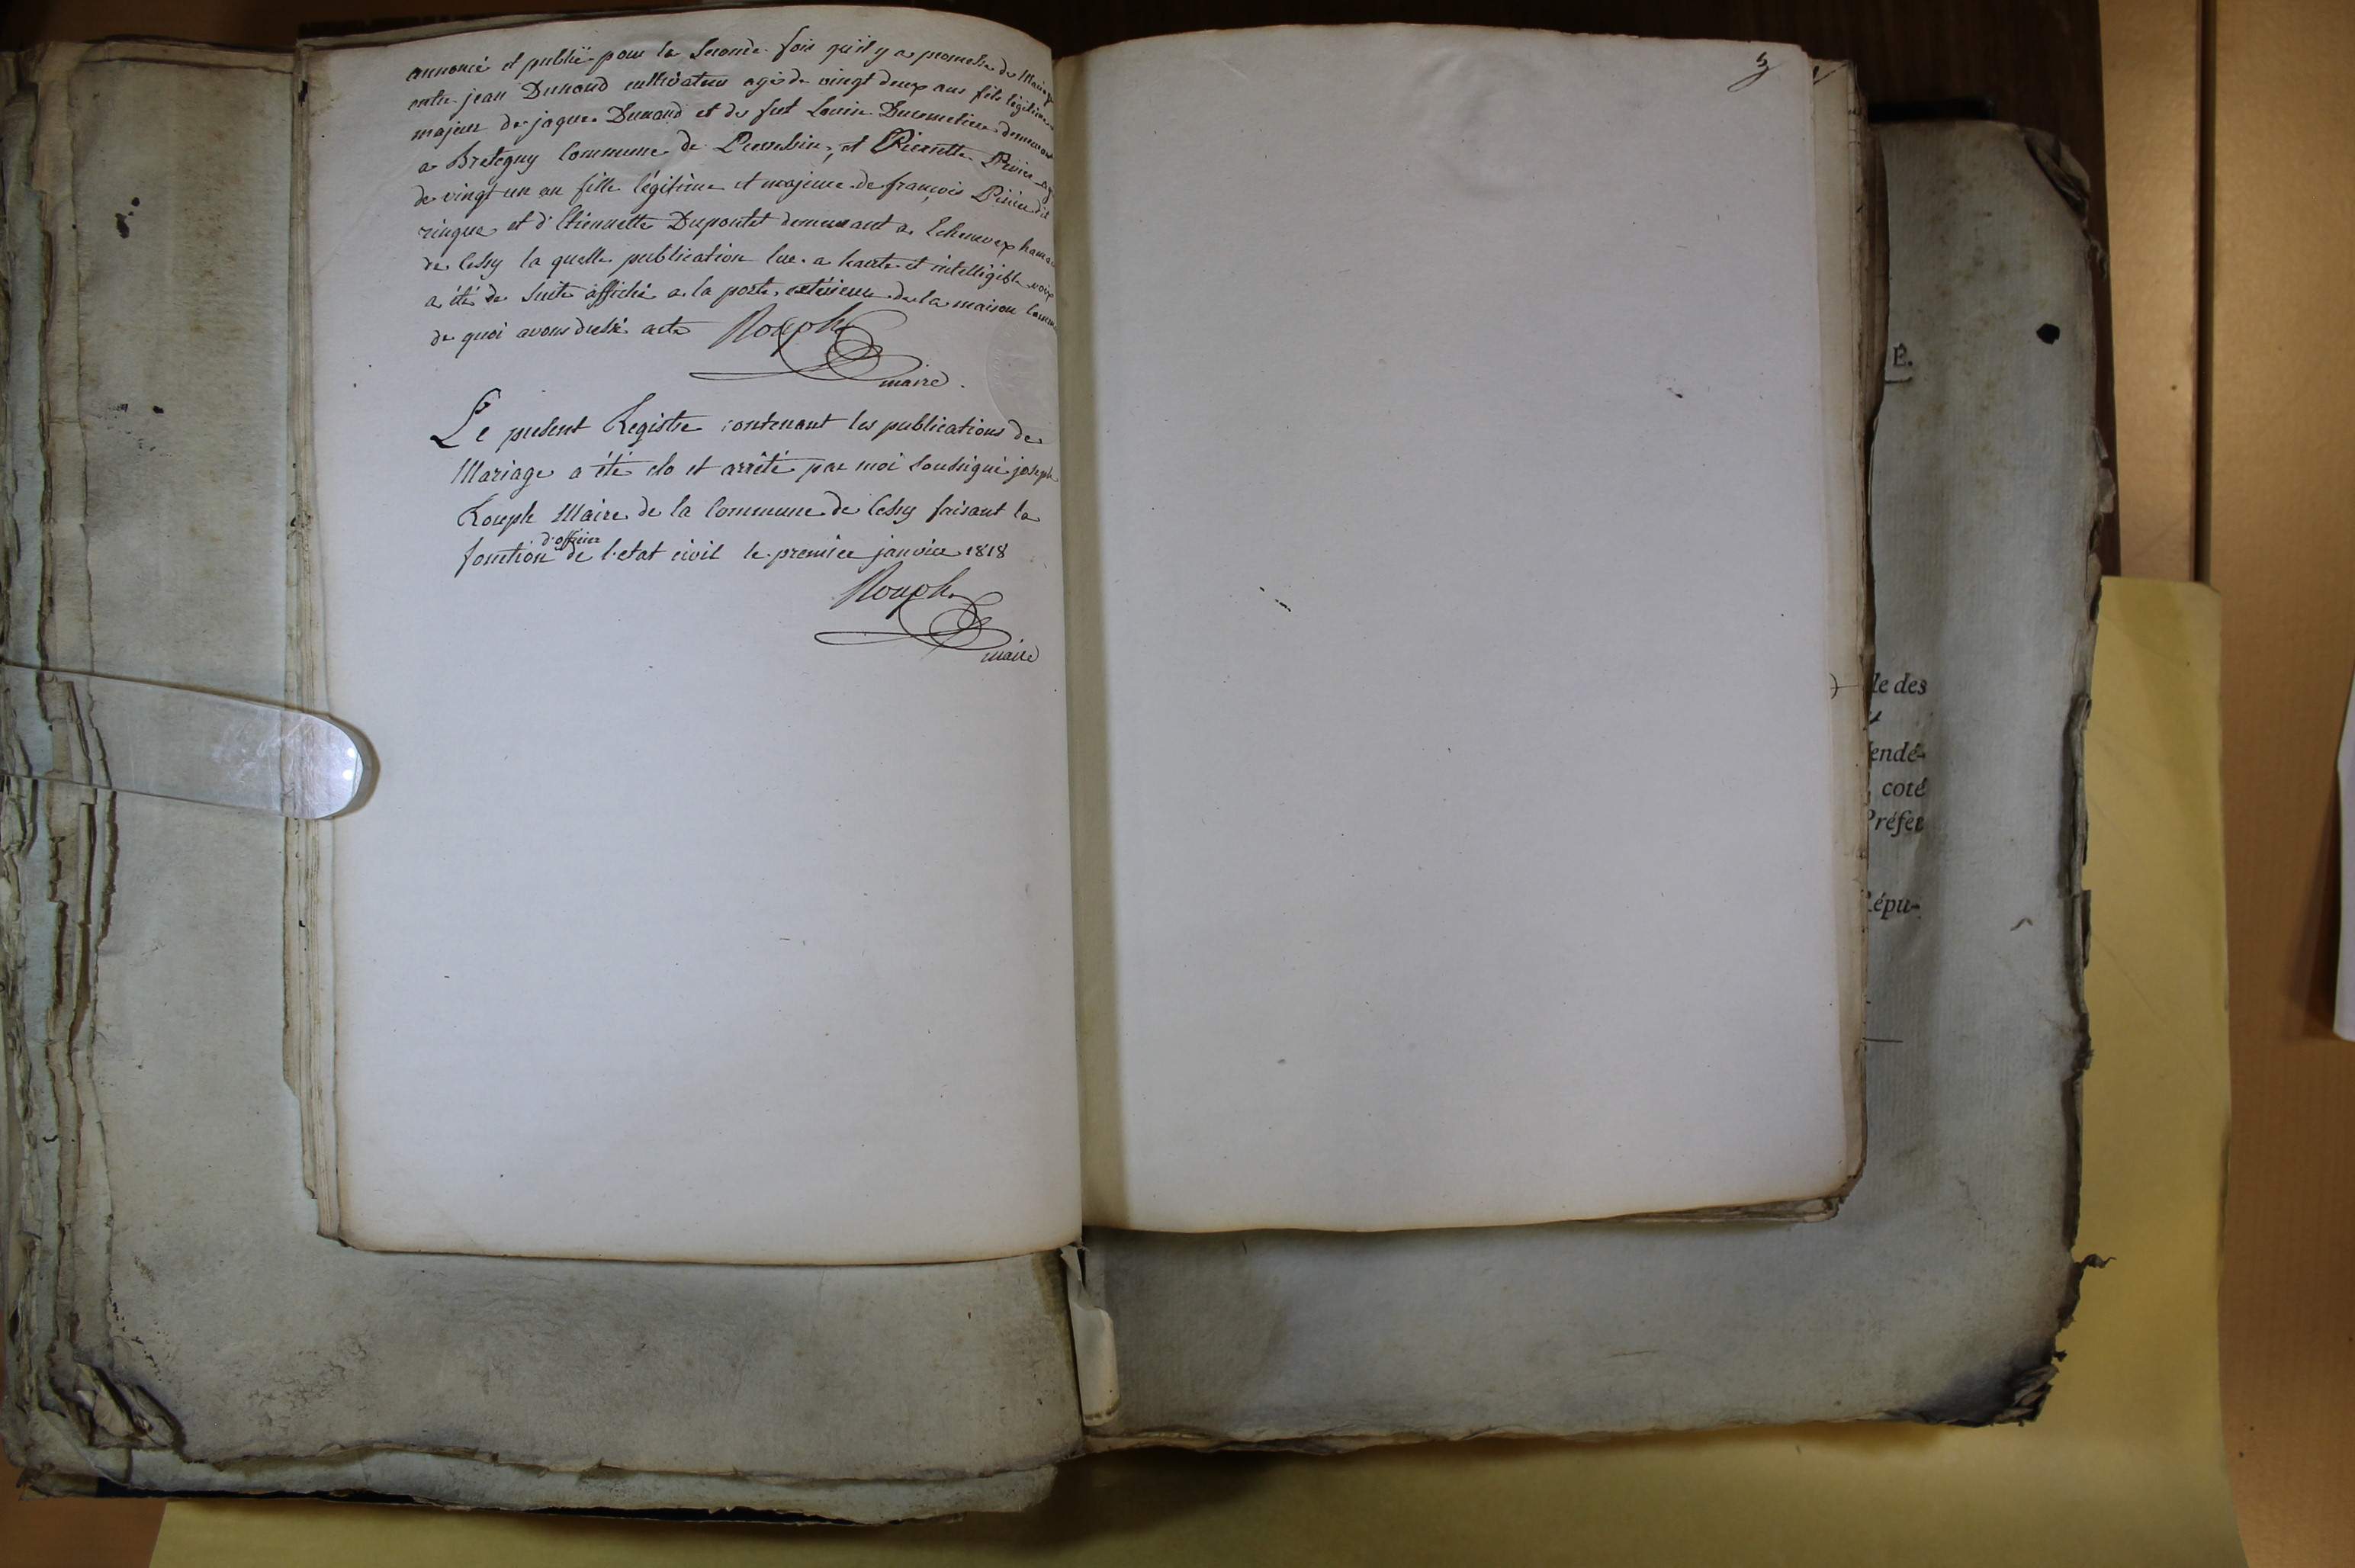 annoncé et publié pour la Seconde fois qu'il y a promesse de Mariage
entre jean Dunand cultivateur agé de vingt deux ans fils légitime
majeur de jaque Dunand et de fut Louise demeurant
a Bretegny Commune de et Pierrette
de vingt un an fille légitime et majeure de françois dit
et d'Etiennette Dupontet demeurant a Echenevex hamau
de Cessy la quelle publication lue a haute et intelligible voix
a été de Suite affiché a la porte extérieure de la maison Comm
de quoi avons dressé acte Rouph
maire.
Le présent Registre contenant les publications de
Mariage a été clo et arrêté par moi Soussigné joseph
Rouph Maire de la Commune de Cessy faisant la
d'officier
fonction de l'etat civil le premier janvier 1818
Rouph
maire
3
E.
le des
endé-
, coté
Préfet
Répu-